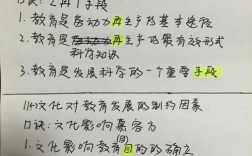 1.教育是劳动力再生产的基本途径
2.教育是再生产的最有效形式
科学知识
3.教育是发展科学的一个重要手段
(十)文化对教育发展的制约因素
口诀:文化影响
1.文化影响教育目的的确立